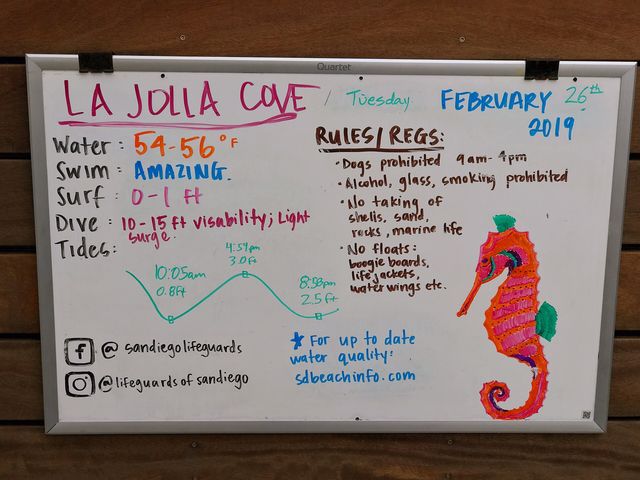 Quartet
LA JOLLA COVE / Tuesday FEBRUARY 26th
2019
Water: 54-56°F
Swim: AMAZING.
Surf: 0-1 ft
Dive: 10-15 ft visability; Light
surge.
Tides:
10:05am
0.8ft
4:54pm
3.0ft
8:50pm
2.5ft
RULES/REGS:
· Dogs prohibited 9am-4pm
· Alcohol, glass, smoking prohibited
· No taking of
shells, sand,
rocks, marine life
· No floats:
boogie boards,
life jackets,
water wings etc.
f @ sandiegolifeguards
@lifeguardsofsandiego
* For up to date
water quality:
sdbeachinfo.com